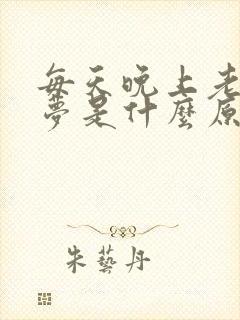 每天晚上老
夢是什麼原
朱藝丹